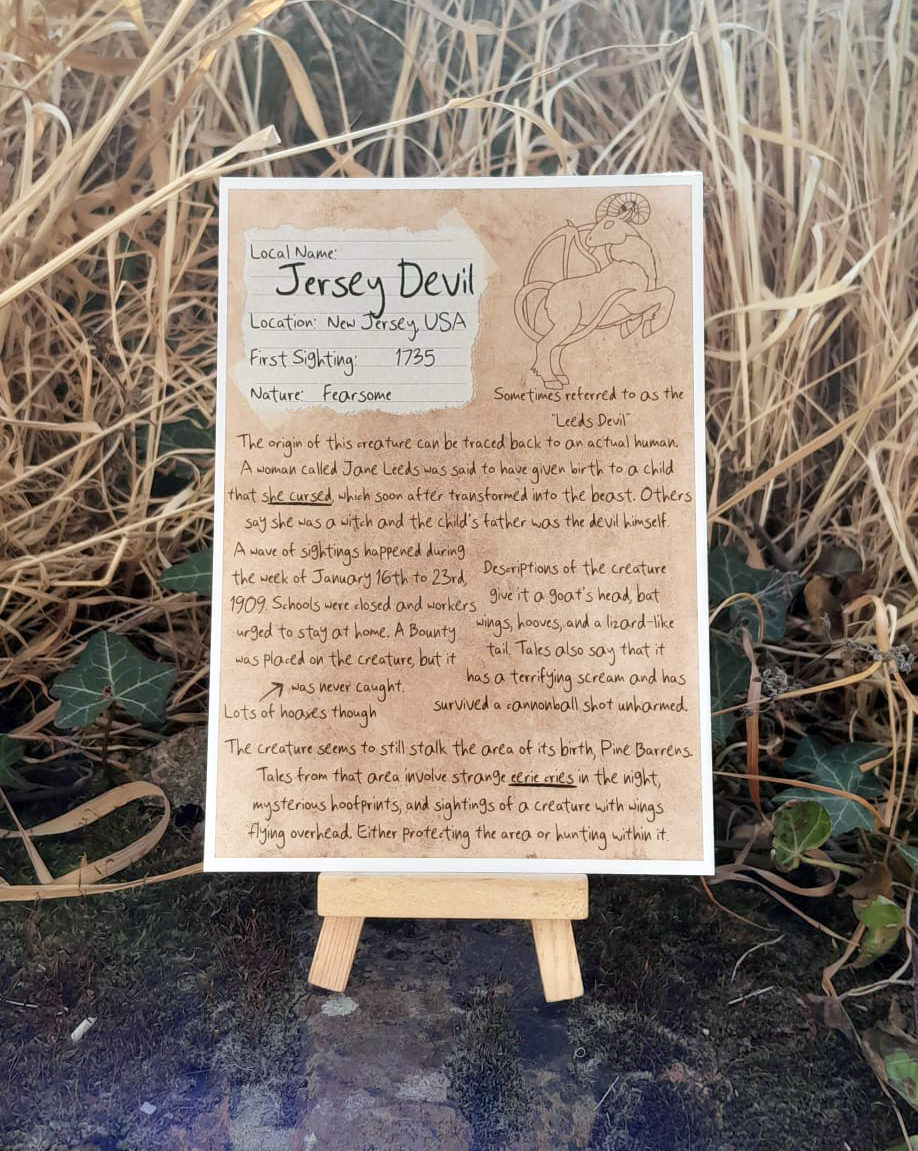 Local Name:
Jersey Devil
Location: New Jersey, USA
First Sighting: 1735
Nature: Fearsome
Sometimes referred to as the
"Leeds Devil"
The origin of this creature can be traced back to an actual human.
A woman called Jane Leeds was said to have given birth to a child
that she cursed, which soon after transformed into the beast. Others
say she was a witch and the child's father was the devil himself.
A wave of sightings happened during
the week of January 16th to 23rd,
1909. Schools were closed and workers
urged to stay at home. A Bounty
was placed on the creature, but it
was never caught.
Lots of hoaxes though
Descriptions of the creature
give it a goat's head, bat
wings, hooves, and a lizard-like
tail. Tales also say that it
has a terrifying scream and has
survived a cannonball shot unharmed.
The creature seems to still stalk the area of its birth, Pine Barrens.
Tales from that area involve strange eerie cries in the night,
mysterious hoofprints, and sightings of a creature with wings
flying overhead. Either protecting the area or hunting within it.